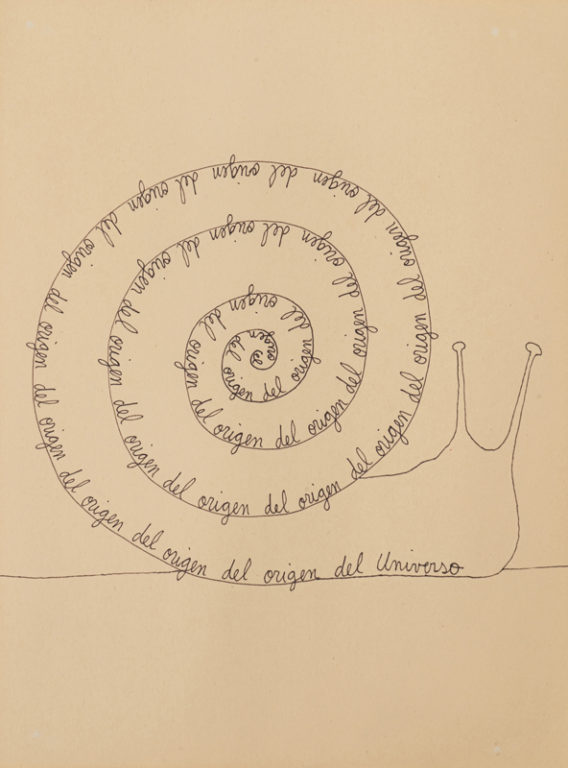 el origen del origen del origen del origen del origen del origen del origen del origen del origen del origen del origen del origen del origen del origen del origen del origen del origen del origen del origen del origen del origen del origen del origen del origen del origen del origen del origen del Universo